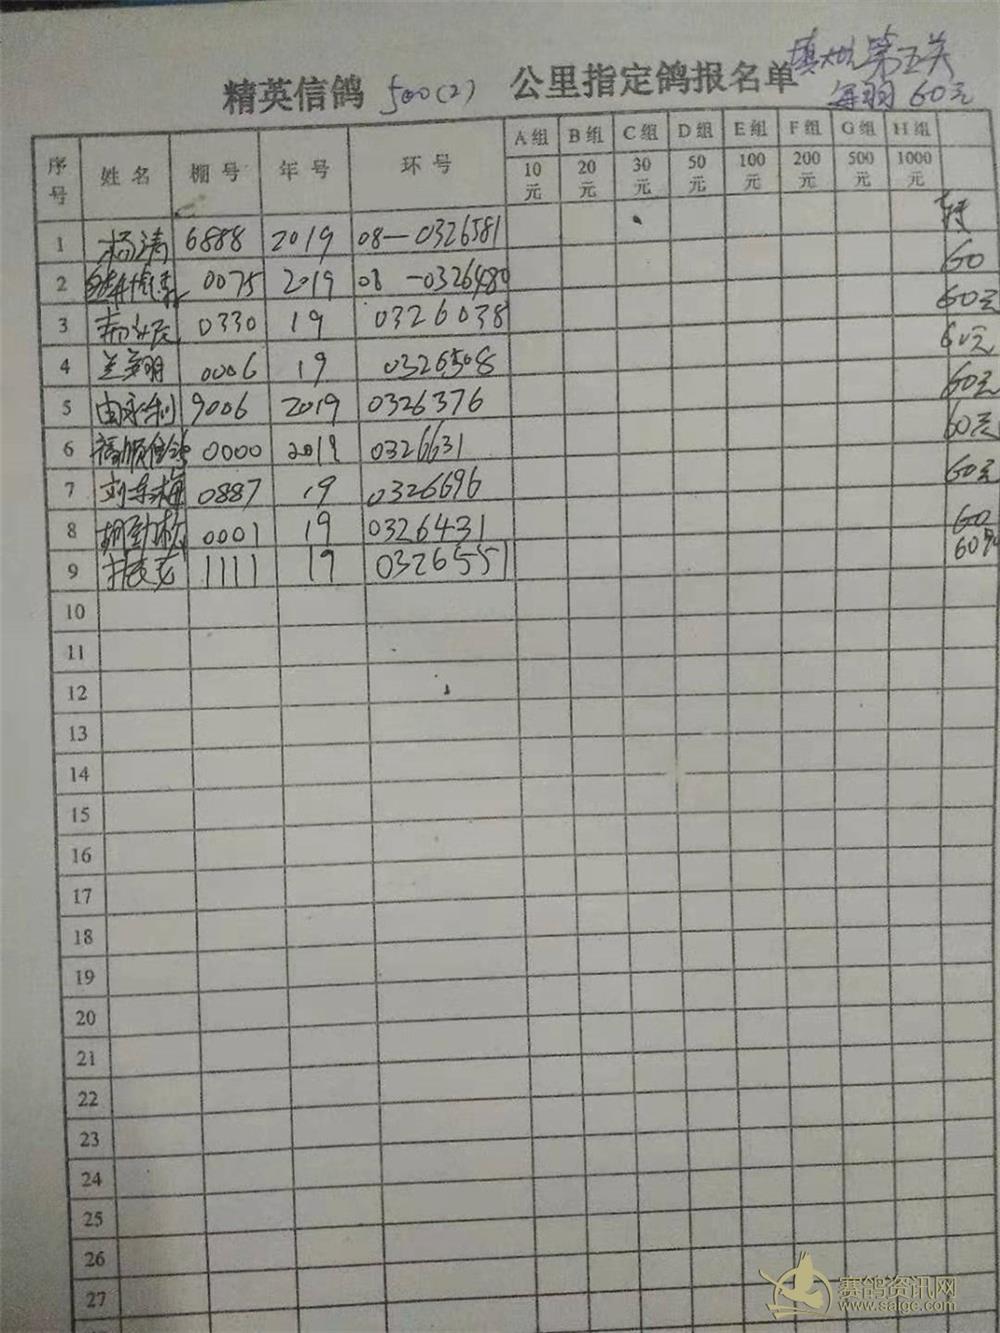 填大坑 第五关
精英信鸽 500(2) 公里指定鸽报名单
每羽 60元
序号 姓名 棚号 年号 环号 A组 B组 C组 D组 E组 F组 G组 H组
10元 20元 30元 50元 100元 200元 500元 1000元
1 杨涛 6888 2019 08—0326581 转
60
2 0075 2019 08 —0326480
60元
3 0330 19 0326038
60元
4 兰翔 0006 19 0326508
60元
5 由永利 9006 2019 0326376
60元
6 福顺信鸽 0000 2019 0326631
60元
7 刘冬梅 0887 19 0326696
60
8 胡劲松 0001 19 0326431
60
9 1111 19 0326551
10
11
12
13
14
15
16
17
18
19
20
21
22
23
24
25
26
27
赛鸽资讯网
www.saigc.com